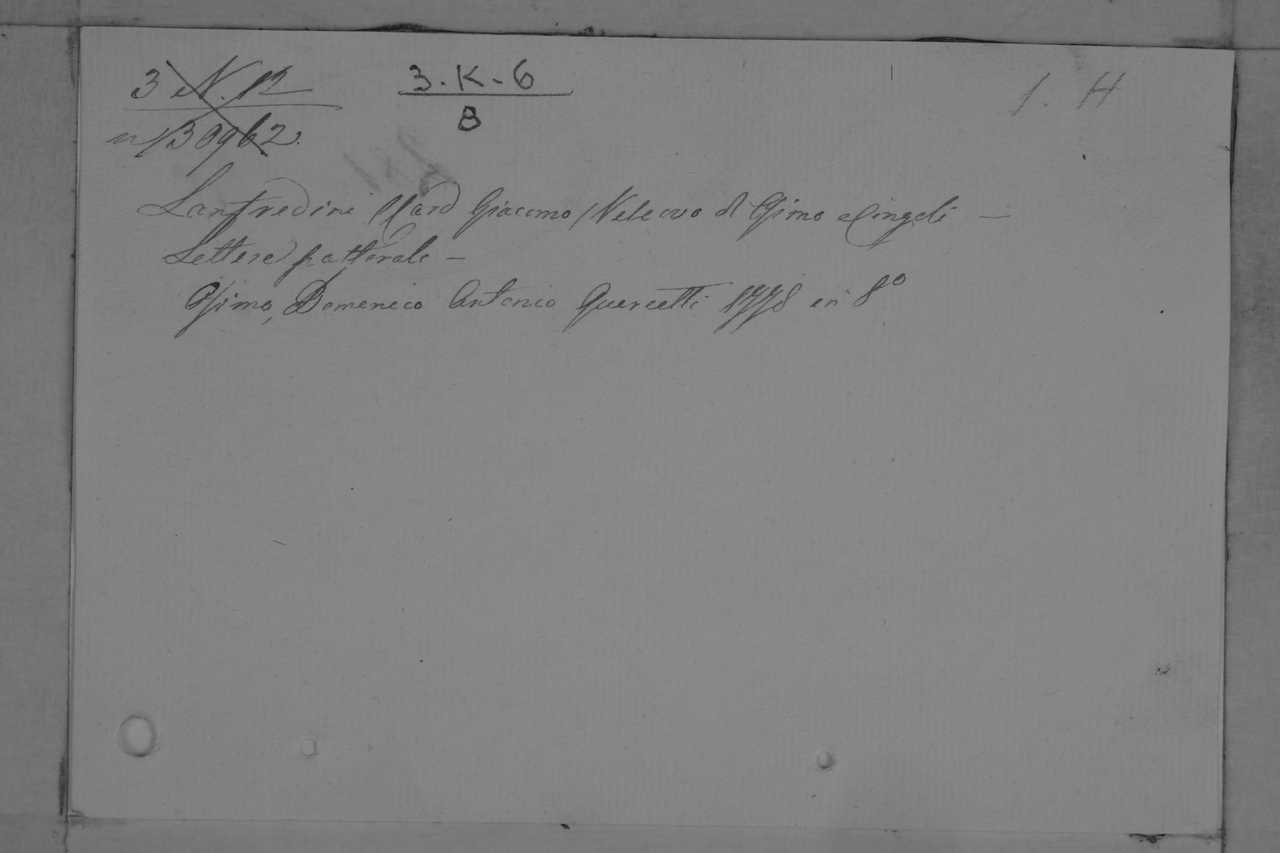 3 N. 12
3-K-6
8
1. H
n 30962.
Lanfredini Card Giacomo Vescovo di Osimo e Cingoli —
Lettere pastorale —
Osimo, Domenico Antonio Quercetti 1778 in 8°